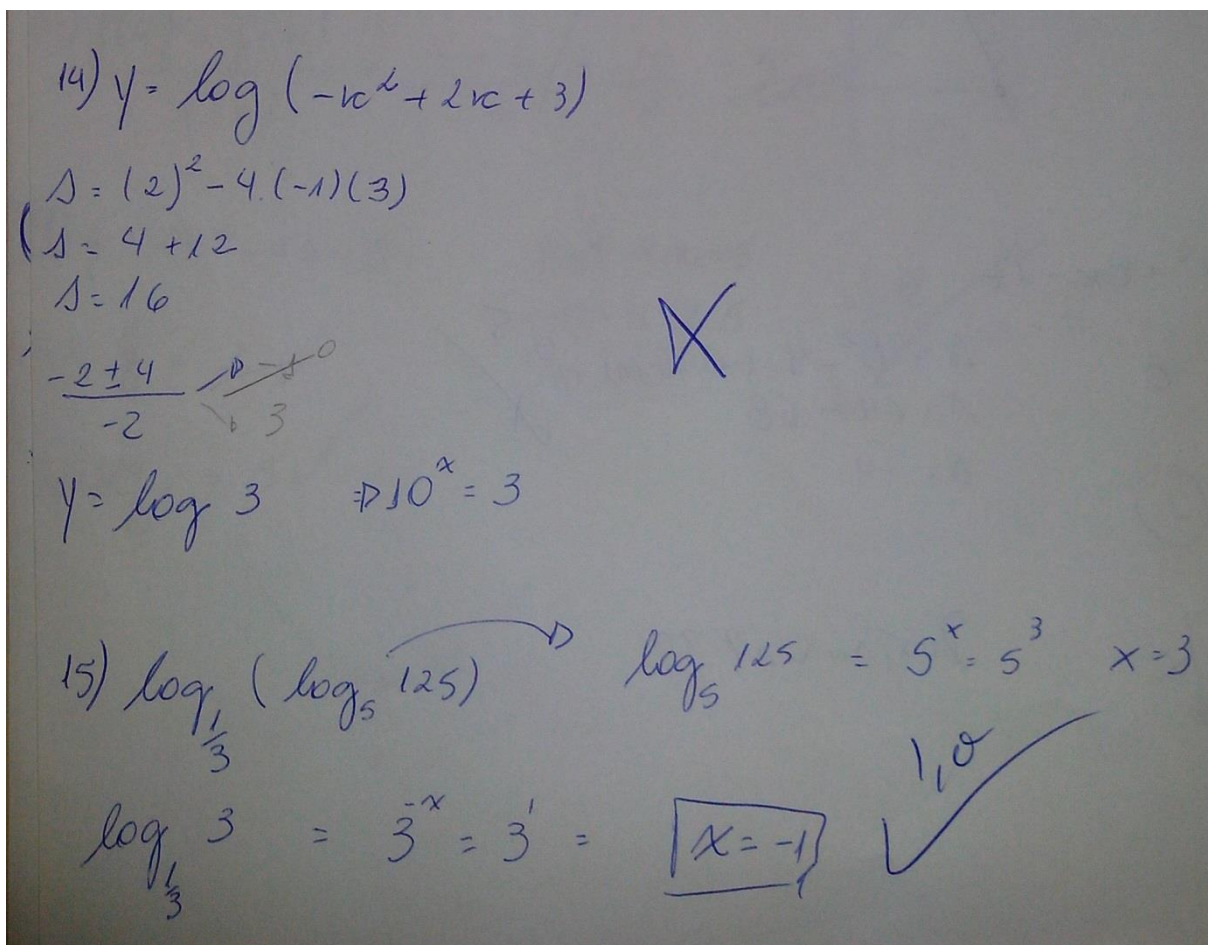 14) y = log (-x² + 2x + 3)
Δ = (2)² - 4.(-1)(3)
Δ = 4 + 12
Δ = 16
-2 ± 4 / -2 → -1
→ 3
y = log 3 ⇒ 10ˣ = 3
15) log₁/₃ (log₅ 125) → log₅ 125 = 5ˣ = 5³ x = 3
1,0
log₁/₃ 3 = 3⁻ˣ = 3¹ = x = -1